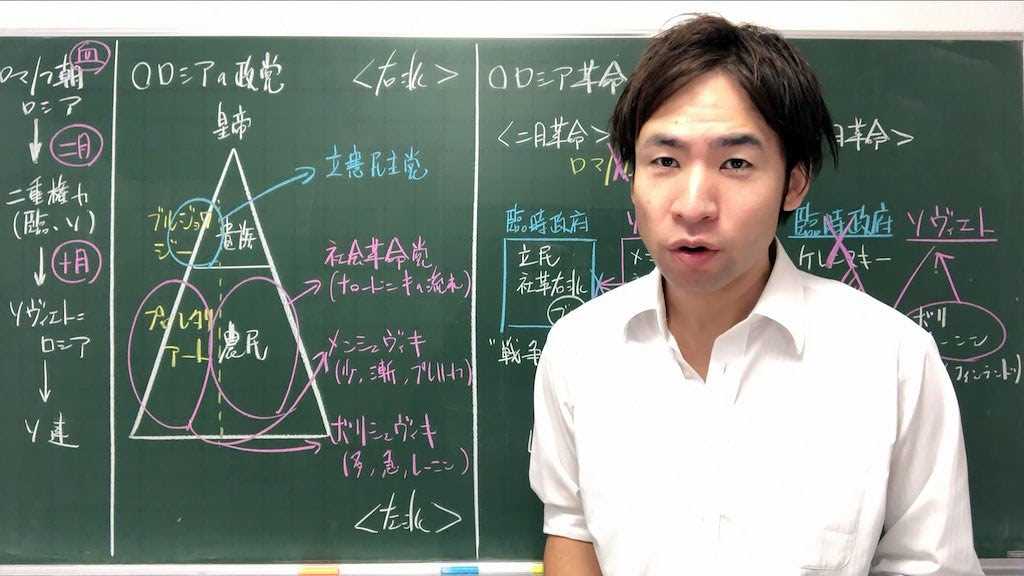 ロマノフ朝
ロシア
二月
二重権力
(臨、ソ)
十月
ソヴィエト=
ロシア
ソ連
○ロシアの政党
<右派>
皇帝
立憲民主党
ブルジョワ
ジー
貴族
社会革命党
(ナロードニキの流れ)
プロレタリ
アート
農民
メンシェヴィキ
(少,漸,プレハーノフ)
ボリシェヴィキ
(多,急,レーニン)
<左派>
○ロシア革命
<二月革命>
月革命>
ロマノ
臨時政府
立民
社革右派
"戦争
臨時政府
ケレンスキー
ソヴィエト
ボリ
ーニン
(フィンランド)